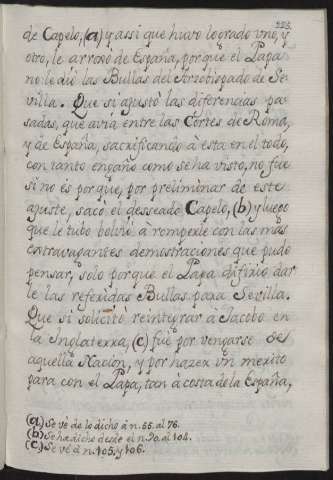 223.
de Capelo, (a) y assi que huvo logrado uno, y
otro, le arrojo de España, porque el Papa
no le dió las Bullas del Arzobispado de Se-
villa. Que si ajustó las diferencias pa-
sadas, que avia entre las Cortes de Roma,
y de España, sacrificando à esta en el todo,
con tanto engaño como se ha visto, no fue
si no es porque, por preliminar de este
ajuste, sacò el desseado Capelo, (b) y luego
que le tubo bolviò à romperle con las mas
extravagantes demostraciones que pudo
pensar, solo porque el Papa difiriò dar
le las referidas Bullas para Sevilla.
Que si solicitò reintegrar à Jacobo en
la Inglaterra, (c) fue por vengarse de
aquella Nacion, y por hazer un merito
para con el Papa, tan à costa de la España,
(a) Se vè de lo dicho à n. 55. al 76.
(b) Se ha dicho desde el n. 90. al 104.
(c) Se vè à n. 105. y 106.